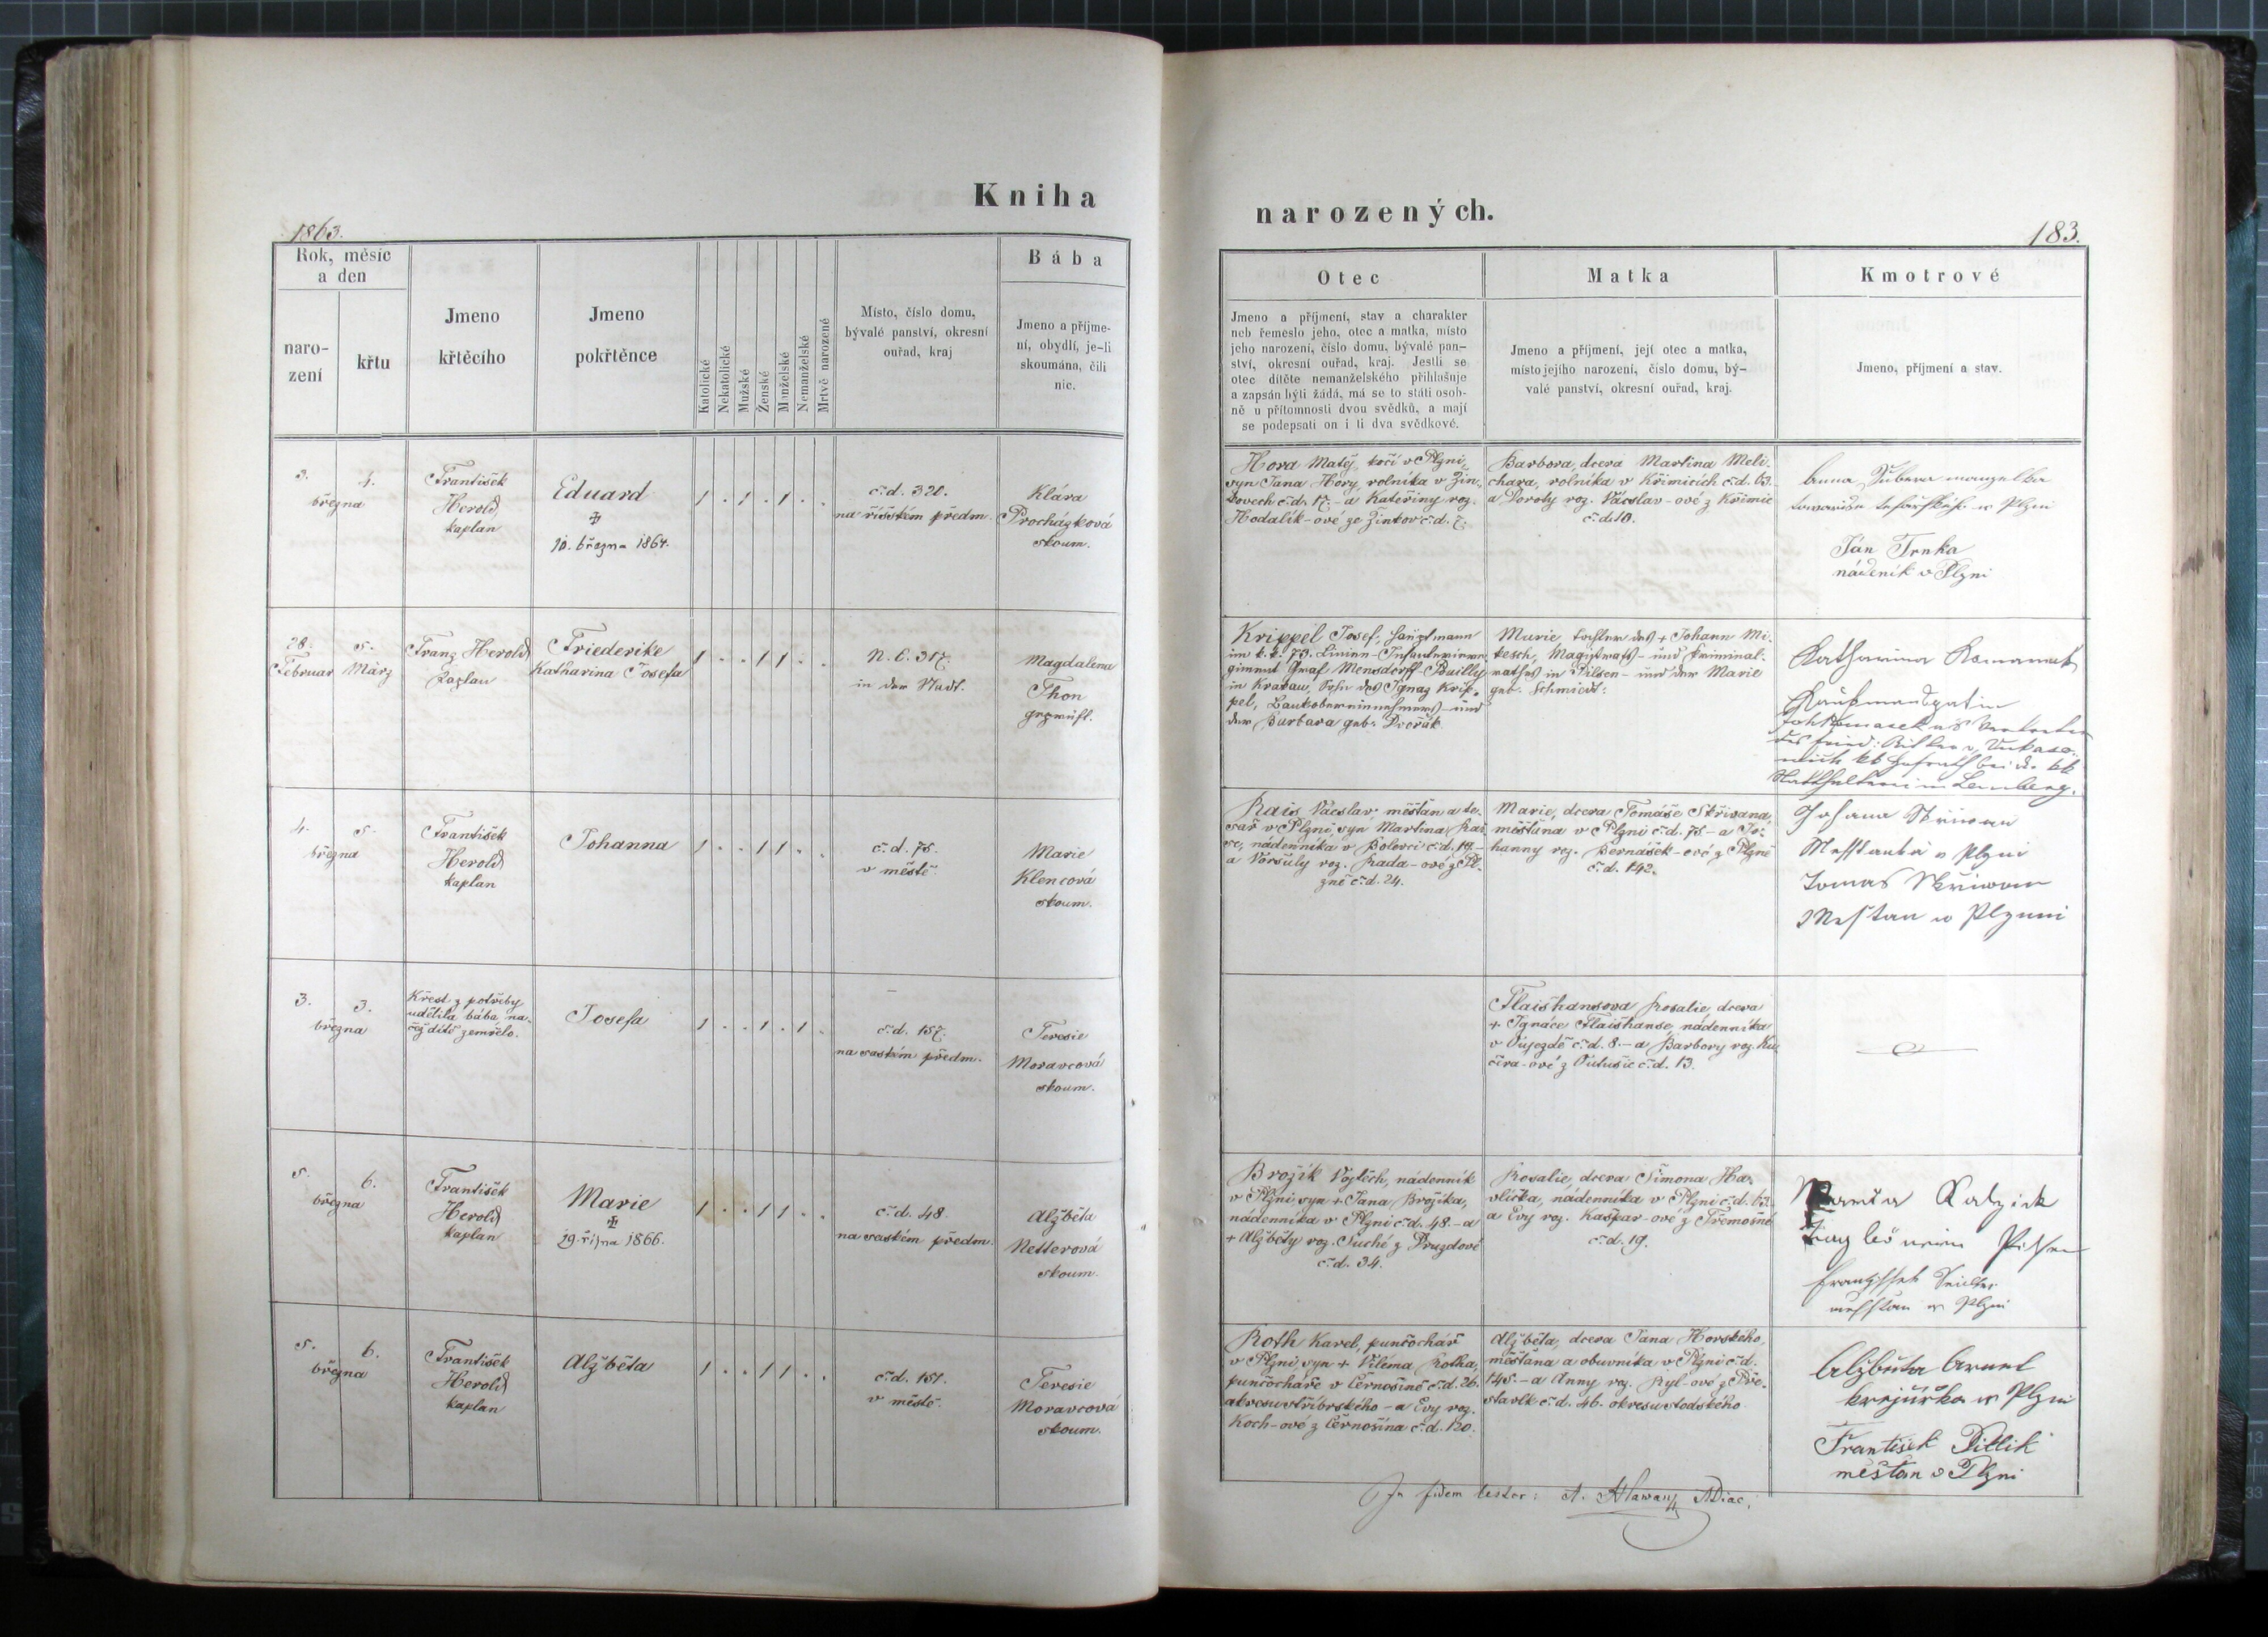 Kniha
narozených.
1863.
183.
Rok, měsíc
a den
naro-
zení
křtu
Jmeno
křtěcího
Jmeno
pokřtěnce
Katolické
Nekatolické
Mužské
Ženské
Manželské
Nemanželské
Mrtvě narozené
Místo, číslo domu,
bývalé panství, okresní
ouřad, kraj
Bába
Jmeno a příjme-
ní, obydlí, je-li
skoumána, čili
nic.
Otec
Jmeno a příjmení, stav a charakter
neb řemeslo jeho, otec a matka, místo
jeho narození, číslo domu, bývalé pan-
ství, okresní ouřad, kraj. Jestli se
otec dítěte nemanželského přihlašuje
a zapsán býti žádá, má se to státi osob-
ně u přítomnosti dvou svědků, a mají
se podepsati on i ti dva svědkové.
Matka
Jmeno a příjmení, její otec a matka,
místo jejího narození, číslo domu, bý-
valé panství, okresní ouřad, kraj.
Kmotrové
Jmeno, příjmení a stav.
3. 4.
března
František
Herold
kaplan
Eduard
10. března 1864.
1 . 1 . 1 . .
č. d. 320.
na říšském předm.
Klára
Procházková
skoum.
Hora Matěj, kočí v Plzni,
syn Jana Hory, rolníka v Žin-
kovech č. d. 17. - a Kateřiny roz.
Hodalík-ové ze Žinkov č. d. 7.
Barbora, dcera Martina Meli-
chara, rolníka v Křimicích č. d. 63.
a Doroty roz. Vácslav-ové z Křimic
č. d. 10.
Anna
w Plzni
Ján Trnka
nádeník v Plzni
28. 5.
Februar März
Franz Herold
Kaplan
Friederike
Katharina Josefa
1 . . 1 1 . .
N. C. 317.
in der Stadt.
Magdalena
Thon
geprüft.
Krippel Josef, Hauptmann
im k. k. 73. Linien-Infanteriere-
giment Graf Mensdorff-Pouilly
in Krakau, Sohn des Ignaz Krip-
pel, Bankobereinnehmers - und
der Barbara geb. Dvořák.
Marie, Tochter des + Johann Mi-
kesch, Magistrats- und Kriminal-
rathes in Pilsen - und der Marie
geb. Schmiedt.
Katharina
Kaufmannsgatin
in Lemberg.
4. 5.
března
František
Herold
kaplan
Johanna
1 . . 1 1 . .
č. d. 75.
v městě.
Marie
Klencová
skoum.
Rais Vácslav, měšťan a te-
sař v Plzni, syn Martina Rai-
se, nádenníka v Bolevci č. d. 19. -
a Voršuly roz. Rada-ové z Pl-
zně č. d. 24.
Marie, dcera Tomáše Skřivana,
měšťana v Plzni č. d. 75. - a Jo-
hanny roz. Bernášek-ové z Plzně
č. d. 142.
Johana Skřiwan
w Plzni
Tomas Skřiwan
Mestan w Plznni
3. 3.
března
Křest z potřeby
udělila bába, na-
čež dítě zemřelo.
Josefa
1 . . 1 . 1 .
č. d. 157.
na saském předm.
Teresie
Moravcová
skoum.
Flaišhansova Rosalie, dcera
+ Ignáce Flaišhanse, nádenníka
v Oujezdě č. d. 8. - a Barbory roz. Ku-
čera-ové z Outušic č. d. 13.
5. 6.
března
František
Herold
kaplan
Marie
29. října 1866.
1 . . 1 1 . .
č. d. 48.
na saském předm.
Alžběta
Netterová
skoum.
Brožík Vojtěch, nádenník
v Plzni, syn + Jana Brožíka,
nádenníka v Plzni č. d. 48. - a
+ Alžběty roz. Suché z Druzdové
č. d. 34.
Rosalie, dcera Šimona Ha-
vlíčka, nádenníka v Plzni č. d. 63.
a Evy roz. Kašpar-ové z Třemošné
č. d. 19.
Pilsen
w Plzni
5. 6.
března
František
Herold
kaplan
Alžběta
1 . . 1 1 . .
č. d. 151.
v městě.
Teresie
Moravcová
skoum.
Roth Karel, punčochář
v Plzni, syn + Viléma Rotha,
punčocháře v Černošíně č. d. 26.
okresu stříbrského - a Evy roz.
Koch-ové z Černošína č. d. 120.
Alžběta, dcera Jana Horského,
měšťana a obuvníka v Plzni č. d.
145. - a Anny roz. Ryl-ové z Pře-
stavlk č. d. 46. okresu stodského.
Alžbeta
w Plzni
František Pittlik
měšťan v Plzni
In fidem testor: